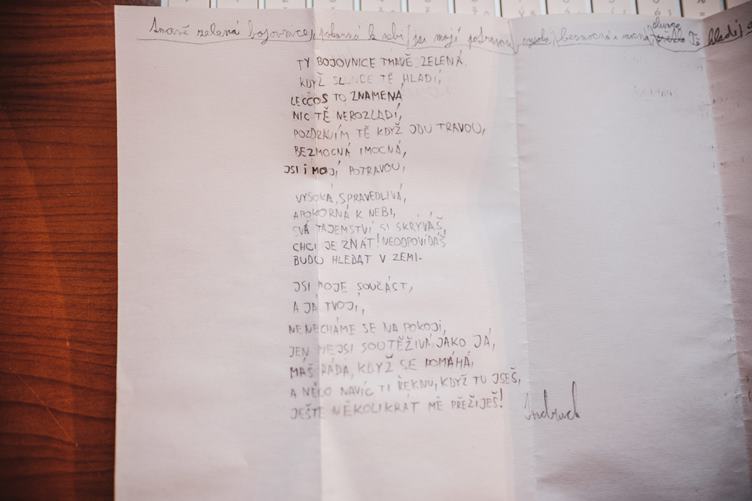 Tmavě zelená bojovnice, pokorná k nebi, jsi mojí potravou, vysoká, bezmocná i mocná, slunce Tě hladí
TY BOJOVNICE TMAVĚ ZELENÁ
KDYŽ SLUNCE TĚ HLADÍ,
LECCOS TO ZNAMENÁ
NIC TĚ NEROZLADÍ,
POZDRAVÍM TĚ KDYŽ JDU TRAVOU,
BEZMOCNÁ I MOCNÁ,
JSI I MOJÍ POTRAVOU,
VYSOKÁ, SPRAVEDLIVÁ,
A POKORNÁ K NEBI,
SVÁ TAJEMSTVÍ SI SKRÝVÁŠ,
CHCI JE ZNÁT! NEODPOVÍDÁŠ
BUDU HLEDAT V ZEMI.
JSI MOJE SOUČÁST,
A JÁ TVOJÍ,
NENECHÁME SE NA POKOJI,
JEN NEJSI SOUTĚŽIVÁ JAKO JÁ,
MÁŠ RÁDA, KDYŽ SE POMÁHÁ,
A NĚCO NAVÍC TI ŘEKNU, KDYŽ TU JSEŠ,
JEŠTĚ NĚKOLIKRÁT MĚ PŘEŽIJEŠ!